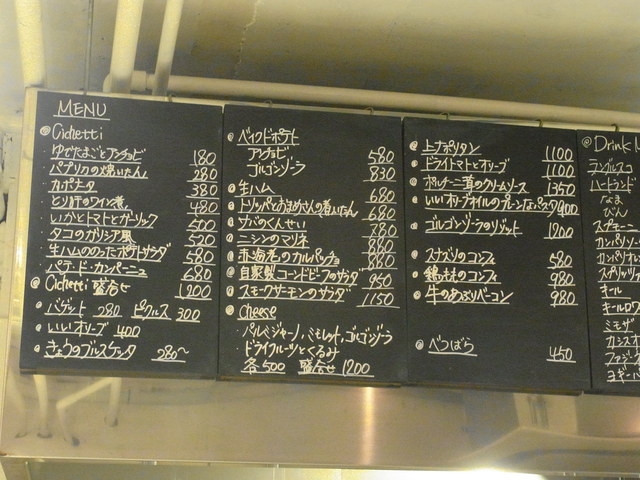 MENU
@ Cichetti
・ゆでたまごとアンチョビ 180
・パプリカの焼いたん 280
・カポナータ 380
・とり肝のワイン煮 480
・いかとトマトとガーリック 500
・タコのガリシア風 520
・生ハムののったポテトサラダ 580
・パテ・ド・カンパーニュ 680
@ Cichetti 盛合せ 1200
・バゲット 280 ピクルス 300
・いいオリーブ 400
・きょうのブルスケッタ 280〜
@ ベイクドポテト
アンチョビ 580
ゴルゴンゾーラ 830
@ 生ハム 680
@ トリッパとお豆さんの煮いたん 680
@ サバのくんせい 780
@ ニシンのマリネ 880
@ 赤海老のカルパッチョ 880
@ 自家製コンビーフのサラダ 950
@ スモークサーモンのサラダ 1150
@ cheese
・パルミジャーノ、ミモレット、ゴルゴンゾーラ
・ドライフルーツとくるみ
各500 盛合せ 1200
@ 上ナポリタン 1100
@ ドライトマトとオリーブ 1100
@ ポルチーニ茸のクリームソース 1350
@ いいオリーブオイルのプレーンなパスタ 900
@ ゴルゴンゾーラのリゾット 1200
@ スナズリのコンフィ 580
@ 鶏もものコンフィ 980
@ 牛のあぶりベーコン 980
@ べつばら 450
@ Drink
ハートランド
なま
びん
スプモーニ
カンパリ
カンパリ
スプリッ
キール
キールロワ
ミモザ
カシスオ
ファジー